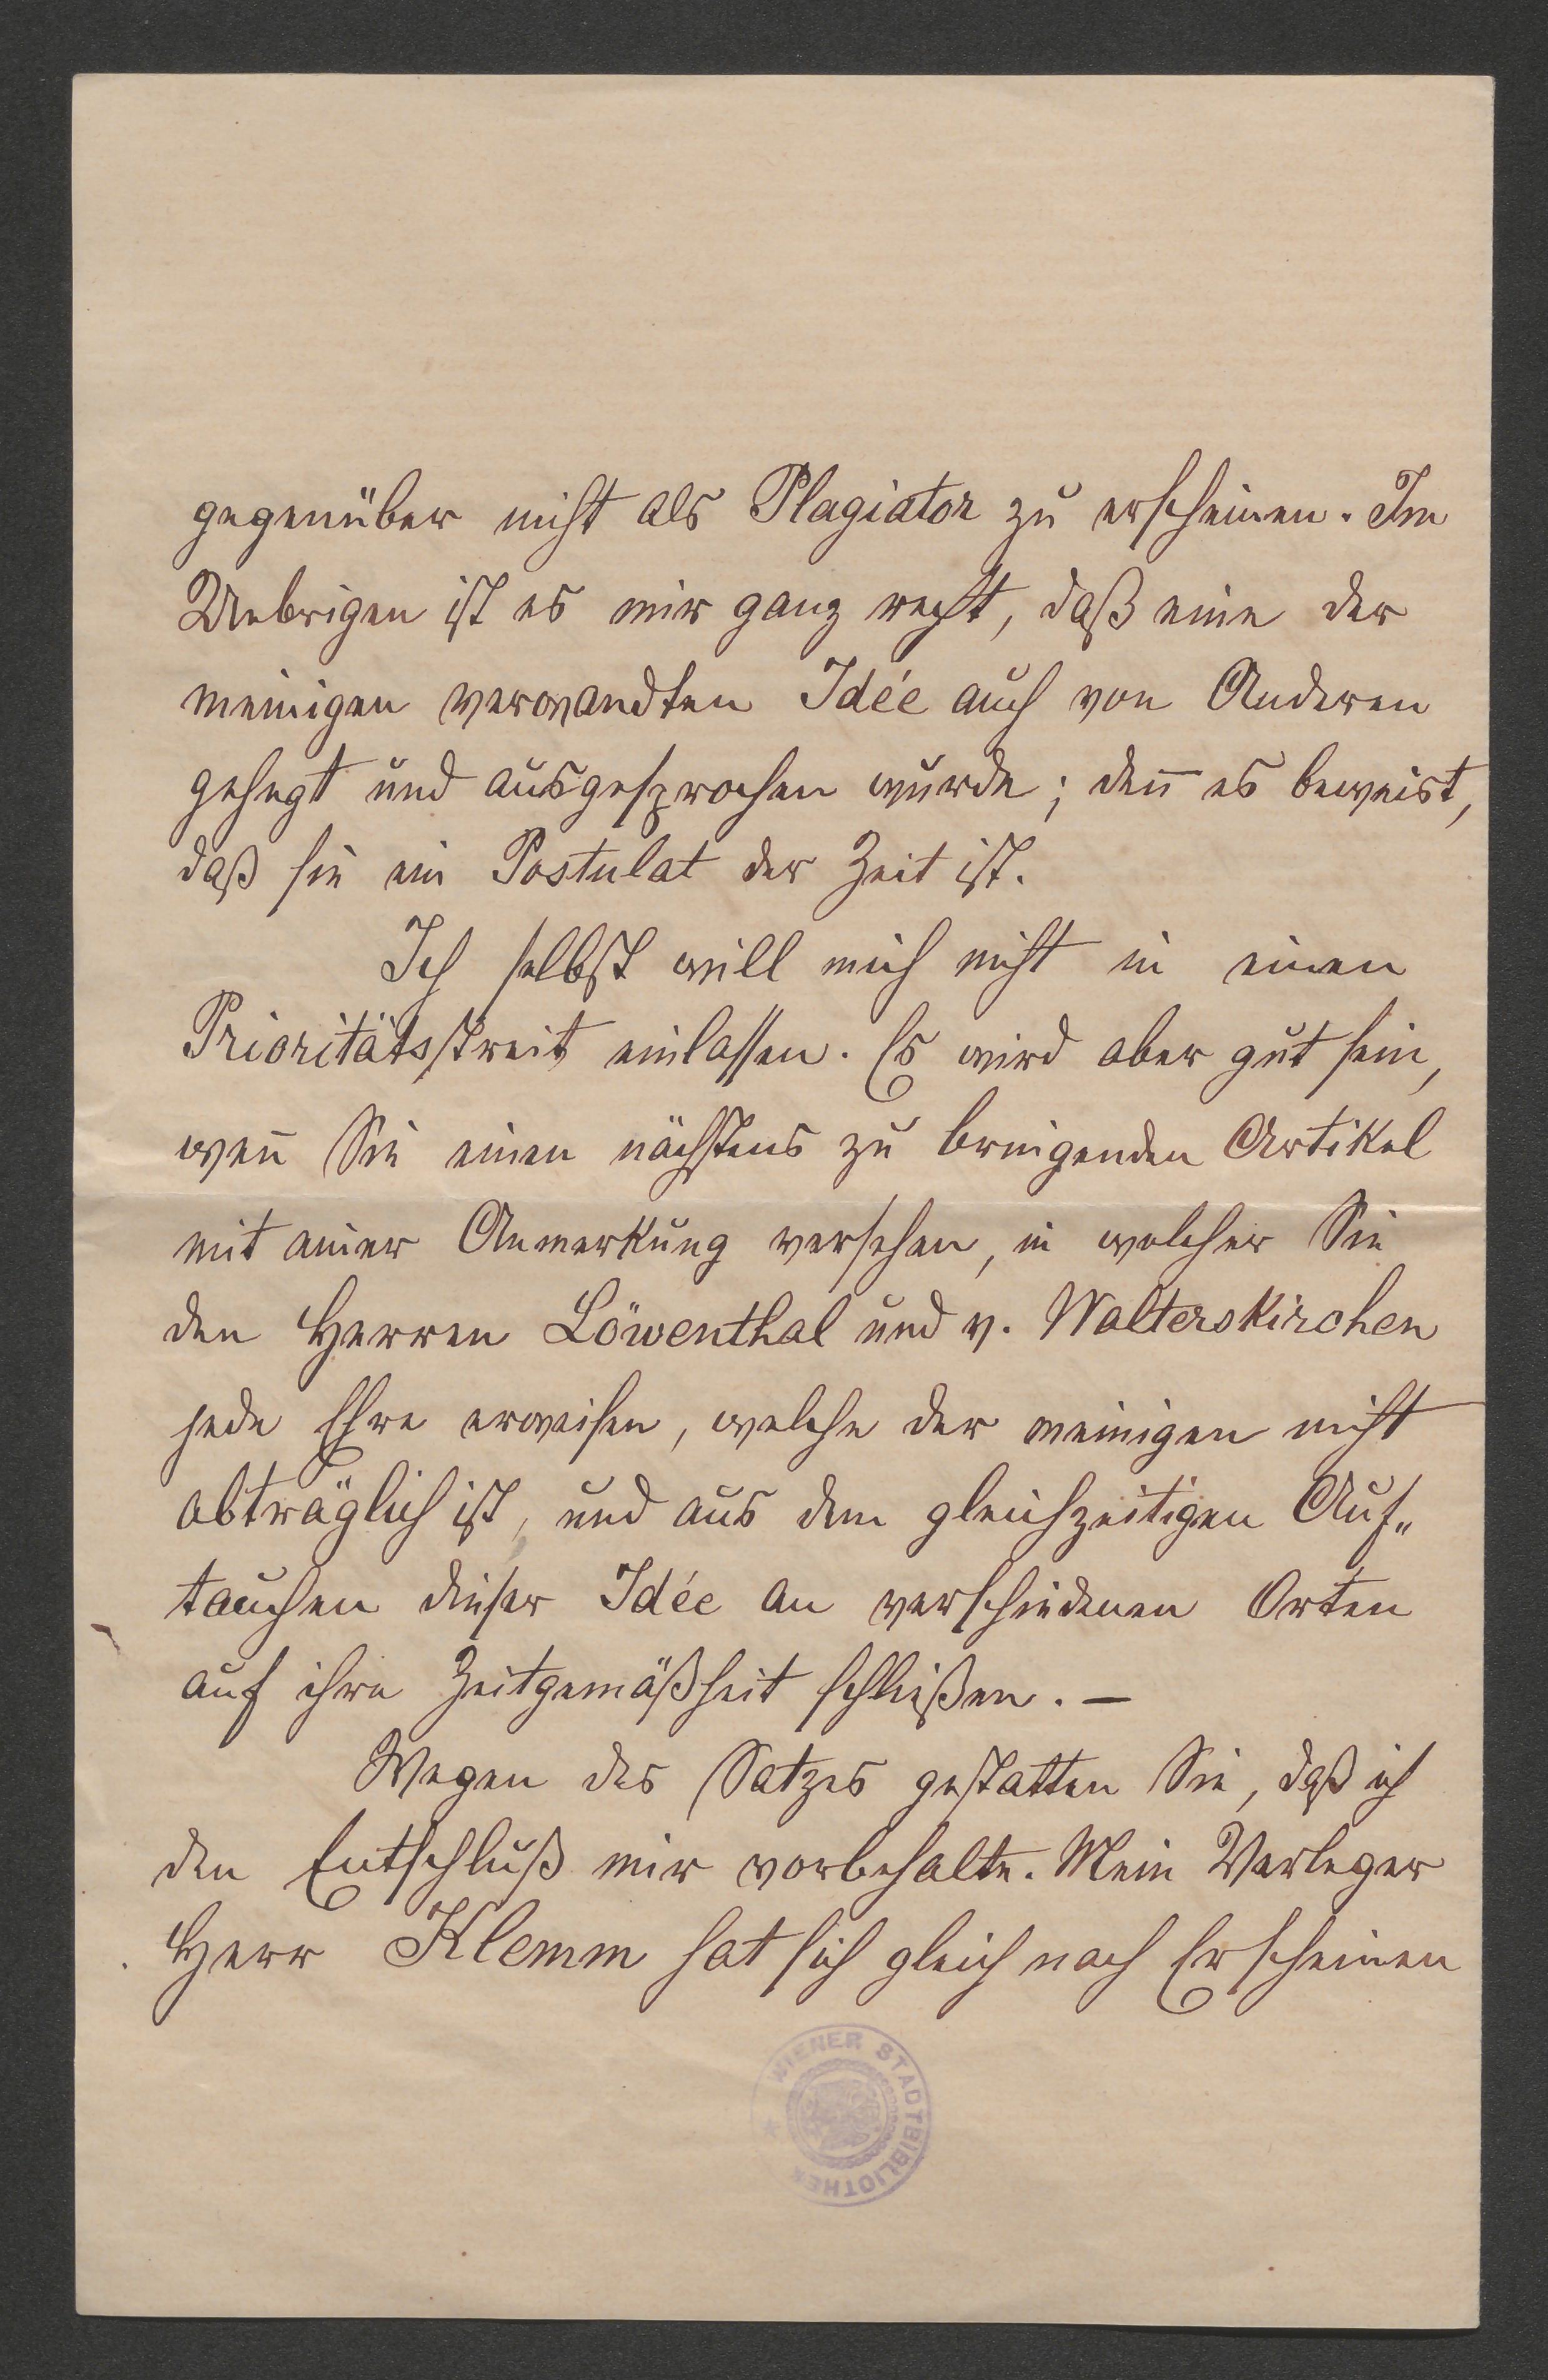 gegenüber nicht als Plagiator zu erscheinen. Im
Uebrigen ist es mir ganz recht, daß eine der
meinigen verwandten Idée auch von Anderen
gehegt und ausgesprochen wurde; den̄ es beweist,
daß sie ein Postulat der Zeit ist.
Ich selbst will mich nicht in einen
Prioritätsstreit einlassen. Es wird aber gut sein,
wen̄ Sie einen nächstens zu bringenden Artikel
mit einer Anmerkung versehen, in welcher Sie
den Herren Löwenthal und v. Walterskirchen
jede Ehre erweisen, welche der meinigen nicht
abträglich ist, und aus dem gleichzeitigen Auf„
tauchen dieser Idée an verschiedenen Orten
auf ihre Zeitgemäßheit schließen. —
Wegen des Satzes gestatten Sie, daß ich
den Entschluß mir vorbehalte. Mein Verleger
Herr Klemm hat sich gleich nach Erscheinen
WIENER STADTBIBLIOTHEK